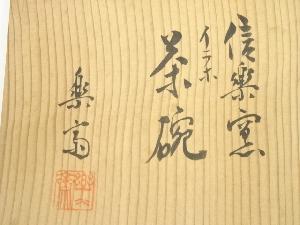 信楽窯
イラホ
茶碗
楽斎